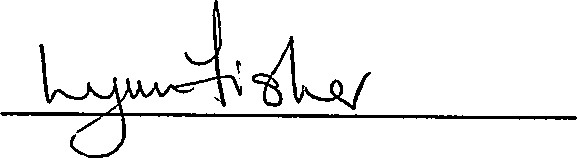 Lynn Fisher